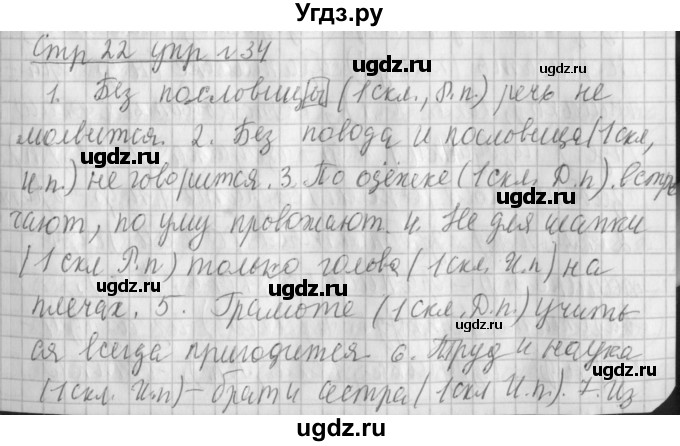 Угдз.ру
Стр 22 упр № 34
1. Без пословицы (1 скл., Р.п.) речь не
молвится. 2. Без повода и пословица (1 скл,
И.п.) не говорится. 3. По одёжке (1 скл. Д.п). встре
чают, по уму провожают. 4. Не для шапки
(1 скл Р.п) только голова (1 скл. И.п) на
плечах. 5. Грамоте (1 скл, Д.п.) учить
ся всегда пригодится 6. Труд и наука
(1 скл. И.п) – брат и сестра (1 скл И.п). 7. Из
www.ugdz.ru
www.ugdz.ru
www.ugdz.ru
www.ugdz.ru
www.ugdz.ru
www.ugdz.ru
www.ugdz.ru
www.ugdz.ru
www.ugdz.ru
Угдз.ру